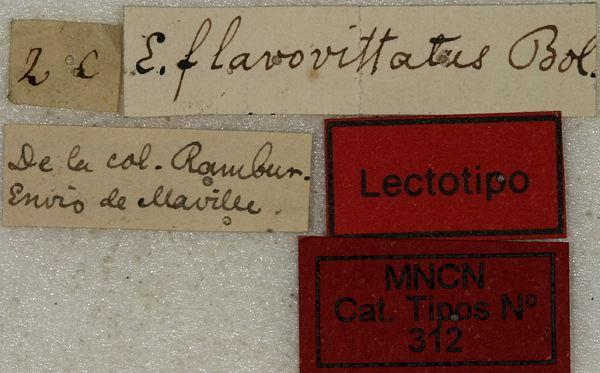 2 c
E. flavovittatus Bol.
De la col. Rambur.
Envio de Maville
Lectotipo
MNCN
Cat. Tipos Nº
312